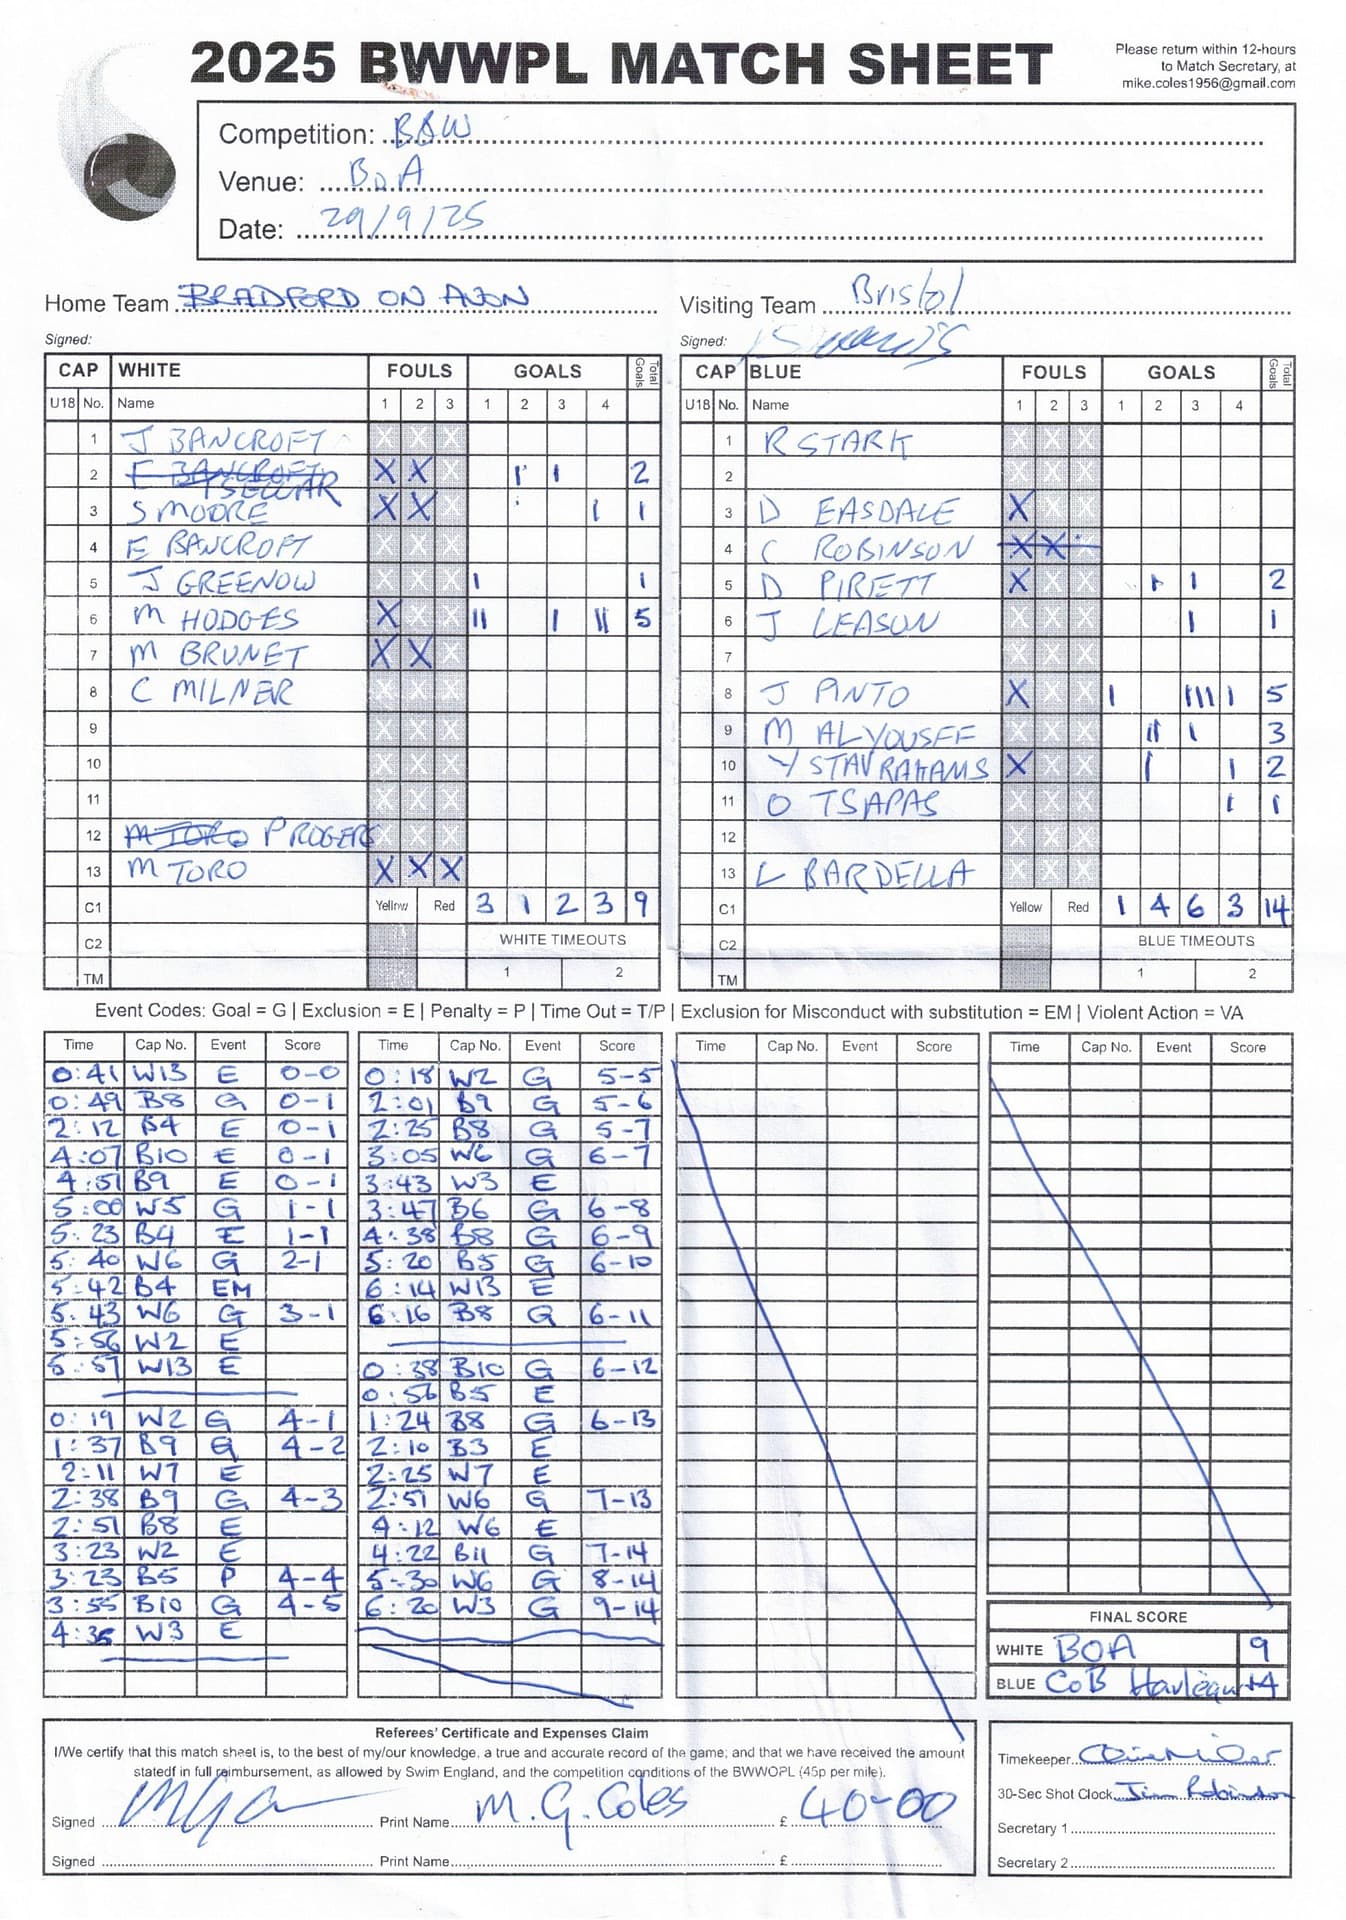 2025 BWWPL MATCH SHEET
Please return within 12-hours
to Match Secretary, at
mike.coles1956@gmail.com
Competition: B&W
Venue: BoA
Date: 29/9/25
Home Team BRADFORD ON AVON
Visiting Team Bristol
Signed:
Signed:
CAP WHITE FOULS GOALS Total Goals
U18 No. Name 1 2 3 1 2 3 4
1 J BANCROFT X X X
2 F BANCROFT T SELLAR X X X I I 2
3 S MOORE X X X I I
4 E BANCROFT X X X
5 J GREENOW X X X I I
6 M HODGES X X X II I II 5
7 M BRUNET X X X
8 C MILNER X X X
9 X X X
10 X X X
11 X X X
12 M TORO P ROGERS X X X
13 M TORO X X X
C1 Yellow Red 3 1 2 3 9
C2 WHITE TIMEOUTS
TM 1 2
CAP BLUE FOULS GOALS Total Goals
U18 No. Name 1 2 3 1 2 3 4
1 R STARK X X X
2 X X X
3 D EASDALE X X X
4 C ROBINSON X X X
5 D PIRETT X X X I I 2
6 J LEASON X X X I I
7 X X X
8 J PINTO X X X I IIII I 5
9 M ALYOUSEF X X X II I 3
10 Y STAVRAHAMS X X X I I 2
11 O TSAPAS X X X I I
12 X X X
13 L BARDELLA X X X
C1 Yellow Red 1 4 6 3 14
C2 BLUE TIMEOUTS
TM 1 2
Event Codes: Goal = G | Exclusion = E | Penalty = P | Time Out = T/P | Exclusion for Misconduct with substitution = EM | Violent Action = VA
Time Cap No. Event Score
0:41 W13 E 0-0
0:49 B8 G 0-1
2:12 B4 E 0-1
4:07 B10 E 0-1
4:51 B9 E 0-1
5:00 W5 G 1-1
5:23 B4 E 1-1
5:40 W6 G 2-1
5:42 B4 EM
5:43 W6 G 3-1
5:56 W2 E
5:57 W13 E
0:19 W2 G 4-1
1:37 B9 G 4-2
2:11 W7 E
2:38 B9 G 4-3
2:51 B8 E
3:23 W2 E
3:23 B5 P 4-4
3:55 B10 G 4-5
4:36 W3 E
Time Cap No. Event Score
0:18 W2 G 5-5
2:01 B9 G 5-6
2:25 B8 G 5-7
3:05 W6 G 6-7
3:43 W3 E
3:47 B6 G 6-8
4:38 B8 G 6-9
5:20 B5 G 6-10
6:14 W13 E
6:16 B8 G 6-11
0:38 B10 G 6-12
0:56 B5 E
1:24 B8 G 6-13
2:10 B3 E
2:25 W7 E
2:51 W6 G 7-13
4:12 W6 E
4:22 B11 G 7-14
5:30 W6 G 8-14
6:20 W3 G 9-14
Time Cap No. Event Score
Time Cap No. Event Score
FINAL SCORE
WHITE BOA 9
BLUE CoB Harlequin 14
Referees' Certificate and Expenses Claim
I/We certify that this match sheet is, to the best of my/our knowledge, a true and accurate record of the game; and that we have received the amount
statedf in full reimbursement, as allowed by Swim England, and the competition conditions of the BWWOPL (45p per mile).
Signed Print Name M.G.Coles £ 40-00
Signed Print Name £
Timekeeper
30-Sec Shot Clock Jim Robinson
Secretary 1
Secretary 2